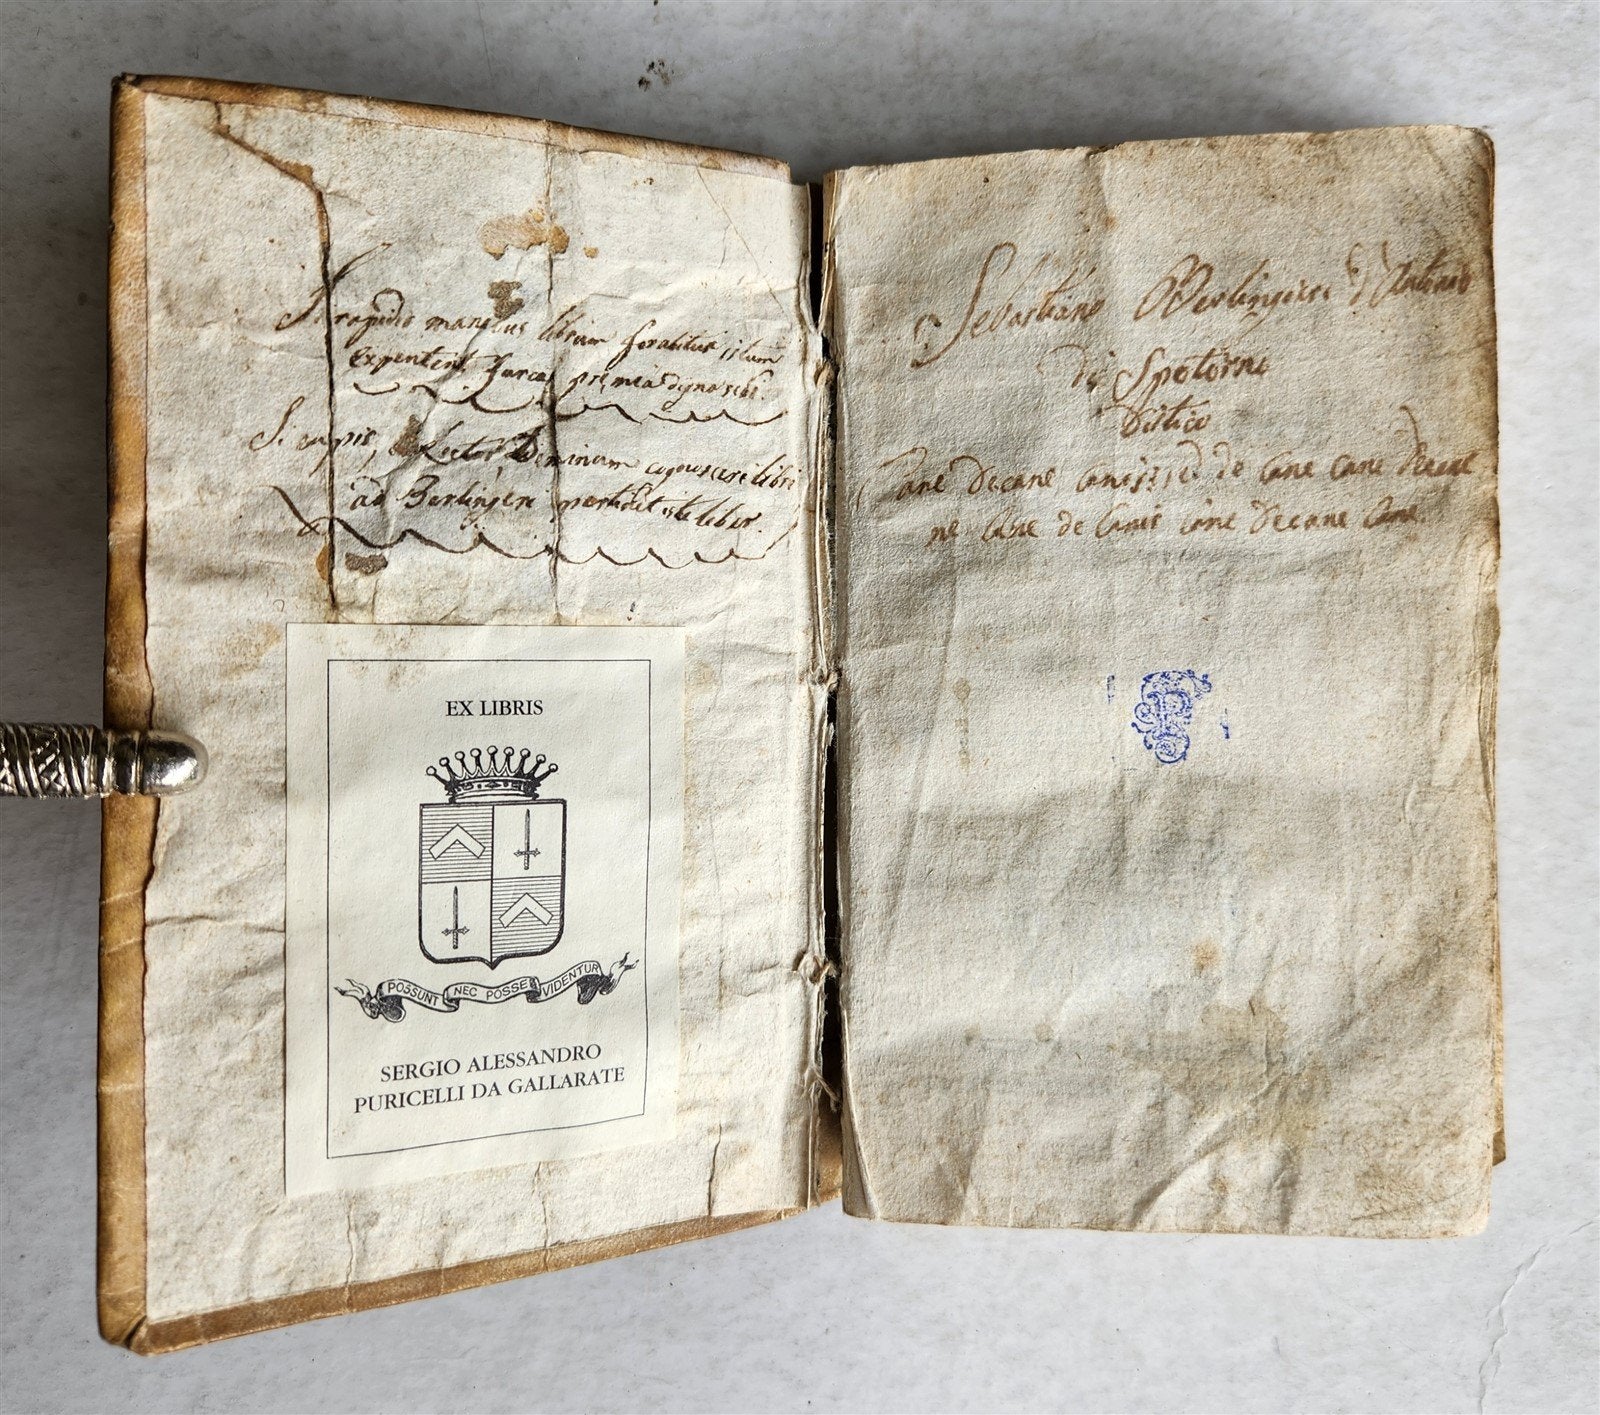 Si rapidis manibus librum furabitur istum
expentent furcas premia digna sibi.
Si cupis, Lector, Dominum cognoscere libri
ad Berlingeri pertidet iste liber.
EX LIBRIS
POSSUNT NEC POSSE VIDENTUR
SERGIO ALESSANDRO
PURICELLI DA GALLARATE
Sebastiano Berlingieri d'Antonio
di Spotorno
Distico
Cane Decane canis de Cane Cane Decane
ne Cane de Canis Cane Decane Cane.